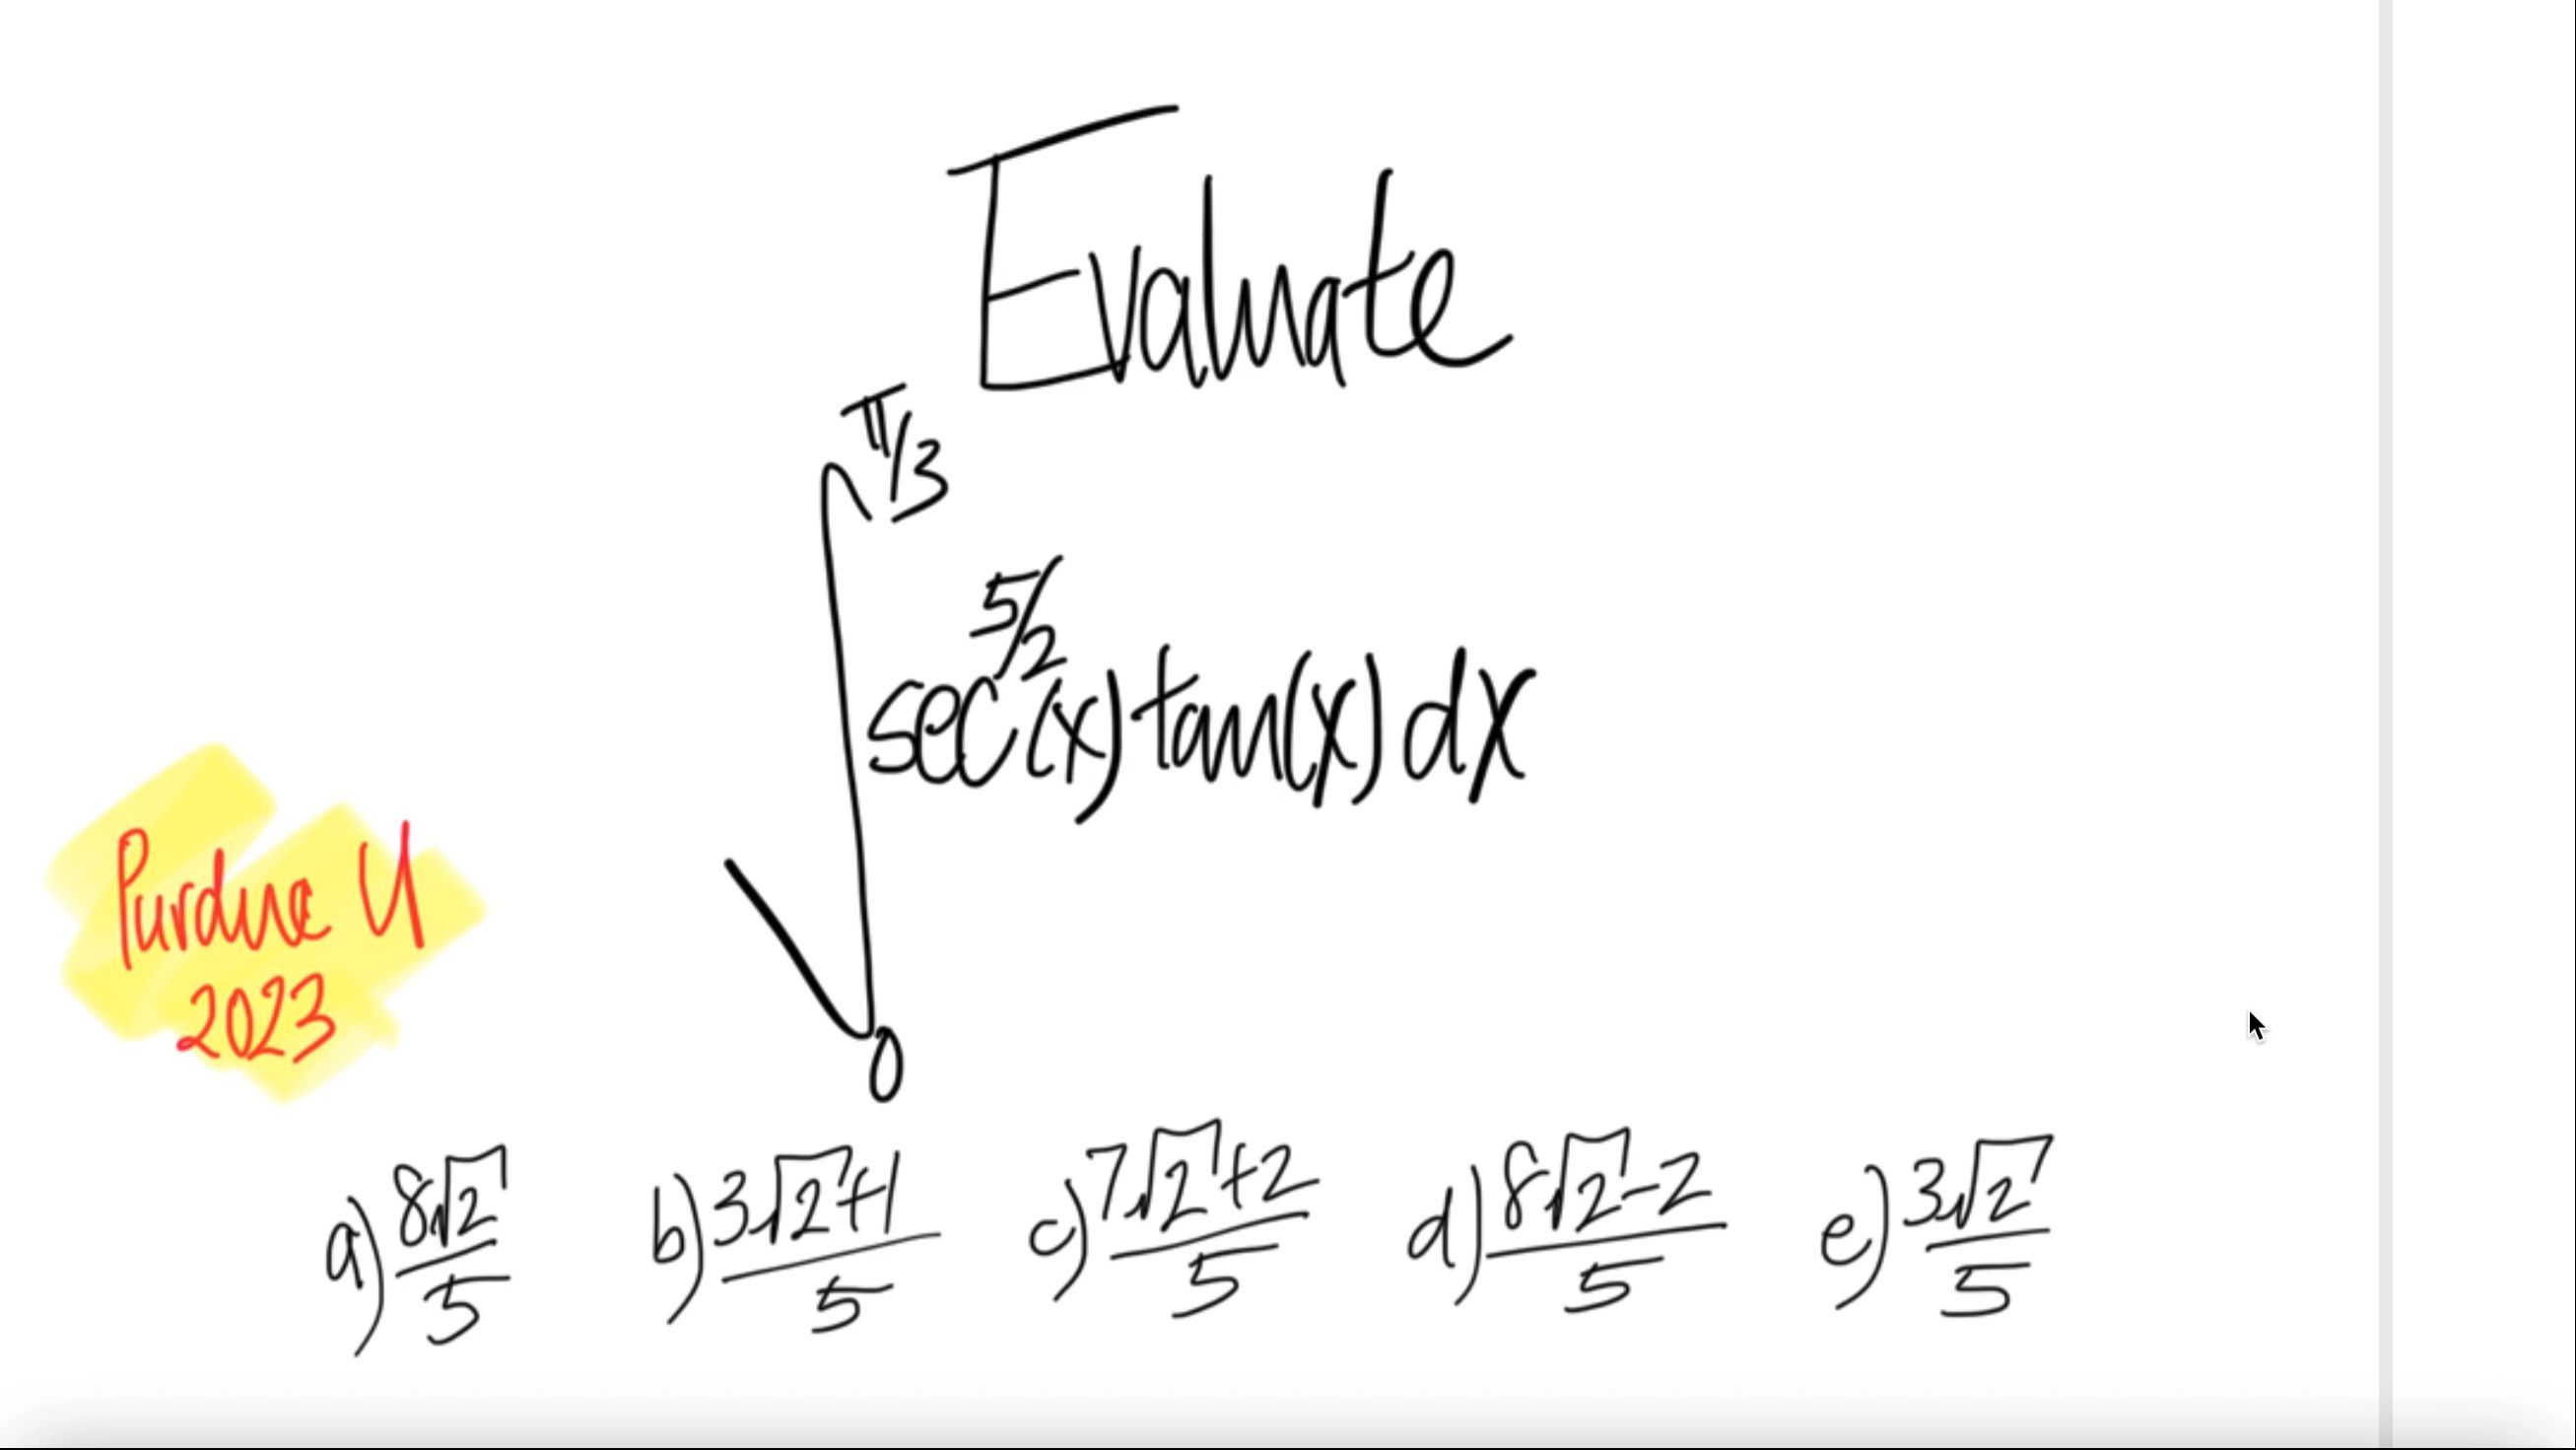 Evaluate
∫₀^{π/3} sec^{5/2}(x) tan(x) dx
Purdue U
2023
a) 8√2/5 b) (3√2+1)/5 c) (7√2+2)/5 d) (8√2-2)/5 e) 3√2/5